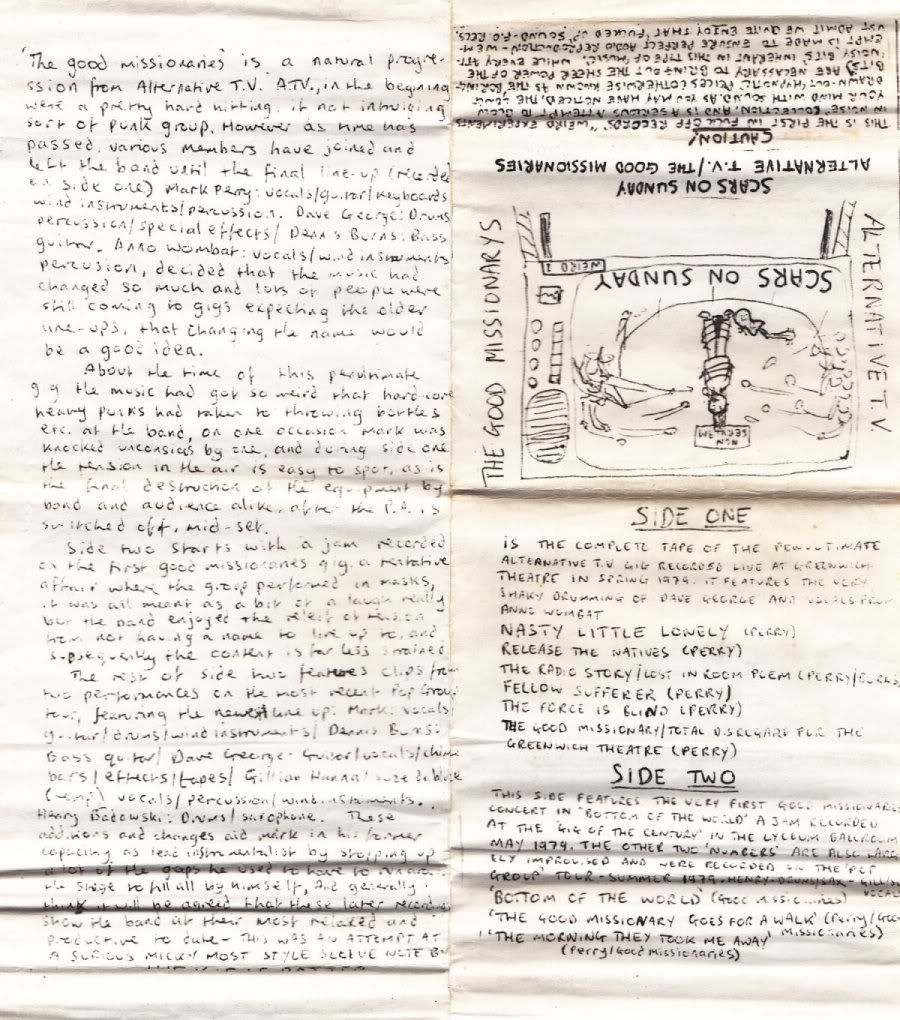 'The good missionaries' is a natural progre-
ssion from Alternative T.V. A.T.V., in the begining
were a pretty hard hitting, if not intruiging
sort of punk group. However as time has
passed, various members have joined and
left the band until the final line-up (recorded
on side one) Mark Perry: vocals/guitar/keyboards
wind instruments/percussion. Dave George: Drums
percussion/special effects/ Dennis Burns: Bass
guitar. Anno Wombat: vocals/wind instruments
percusion, decided that the music had
changed so much and lots of people were
still coming to gigs expecting the older
line-ups, that changing the name would
be a good idea.
About the time of this penultimate
gig the music had got so weird that hard-core
heavy punks had taken to throwing bottles
etc. at the band, on one occasion Mark was
knocked unconsias by one, and during side one
the tension in the air is easy to spot, as is
the final destruction of the equipment by
band and audience alike, after the P.A. is
switched off, mid-set.
Side two starts with a jam recorded
on the first good missionaries gig, a tentative
affair where the group performed in masks,
it was all meant as a bit of a laugh really
but the band enjoyed the release of tension
from not having a name to live up to, and
subsequently the content is far less strained
The rest of side two features clips from
two performances on the most recent Pop Group
tour, featuring the newest line up: Mark: vocals/
guitar/drums/wind instruments/ Dennis Burns:
Bass guitar/ Dave George: Guitar/vocals/chime
bars/effects/tapes/ Gillian Hanna/
(temp) vocals/percussion/wind instruments.
Henry Badowski: Drums/saxophone. These
additions and changes aid mark in his former
capacity as lead instrumentalist by stopping up
a lot of the gaps he used to have to
the stage to fill all by himself, And generally I
think it will be agreed that these later recordings
show the band at their most relaxed and
productive to date - THIS WAS AN ATTEMPT AT
A SERIOUS MICKY MOST STYLE SLEEVE NOTE BY
CAUTION!
THIS IS THE FIRST IN FUCK OFF RECORDS, "WEIRD EXPERIMENTS
IN NOISE, COLLECTION, AND IS A SERIOUS ATTEMPT TO BLOW
YOUR MIND WITH SOUND, AS YOU MAY HAVE NOTICED, THE LONG
DRAWN-OUT, HYPNOTIC PEICES (OTHERWISE KNOWN AS THE BORING-
BITS) ARE NECASSARY TO BRING OUT THE SHEER POWER OF THE
'NOISY BITS' INHERANT IN THIS TYPE OF 'MUSIC'. WHILE EVERY ATT-
EMPT IS MADE TO ENSURE PERFECT AUDIO REPRODUCTION - WE M-
UST ADMIT WE QUITE ENJOY THAT 'FUCKED UP' SOUND - F.O. RECS.
SCARS ON SUNDAY
ALTERNATIVE T.V./THE GOOD MISSIONARIES
THE GOOD MISSIONARYS
ALTERNATIVE T.V
SCARS ON SUNDAY
WEIRD 1
NON
SERVIEM
SIDE ONE
IS THE COMPLETE TAPE OF THE PENULTIMATE
ALTERNATIVE T.V GIG RECORDED LIVE AT GREENWICH
THEATRE IN SPRING 1979. IT FEATURES THE VERY
SHAKY DRUMMING OF DAVE GEORGE AND VOCALS FROM
ANNO WOMBAT
NASTY LITTLE LONELY (PERRY)
RELEASE THE NATIVES (PERRY)
THE RADIO STORY/LOST IN ROOM POEM (PERRY/BURNS)
FELLOW SUFFERER (PERRY)
THE FORCE IS BLIND (PERRY)
THE GOOD MISSIONARY/TOTAL DISREGARD FOR THE
GREENWICH THEATRE (PERRY)
SIDE TWO
THIS SIDE FEATURES THE VERY FIRST GOOD MISSIONARIES
CONCERT IN 'BOTTOM OF THE WORLD' A JAM RECORDED
AT THE 'GIG OF THE CENTURY' IN THE LYCEUM BALLROOM
MAY 1979. THE OTHER TWO 'NUMBERS' ARE ALSO LARG-
ELY IMPROVISED AND WERE RECORDED ON THE 'POP
GROUP' TOUR - SUMMER 1979. HENRY-DRUMS/SAX-
VOCALS
'BOTTOM OF THE WORLD' (Good Missionaries)
'THE GOOD MISSIONARY GOES FOR A WALK' (Perry/Good
Missionaries)
'THE MORNING THEY TOOK ME AWAY'
(Perry/Good Missionaries)